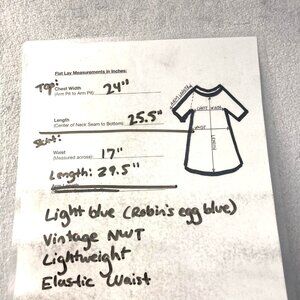 Flat Lay Measurements in Inches:
Top:
Chest Width 24"
(Arm Pit to Arm Pit)
Length 25.5"
(Center of Neck Seam to Bottom)
Skirt:
Waist 17"
(Measured across)
Length: 29.5"
Light blue (Robin's egg blue)
Vintage NWT
Lightweight
Elastic Waist